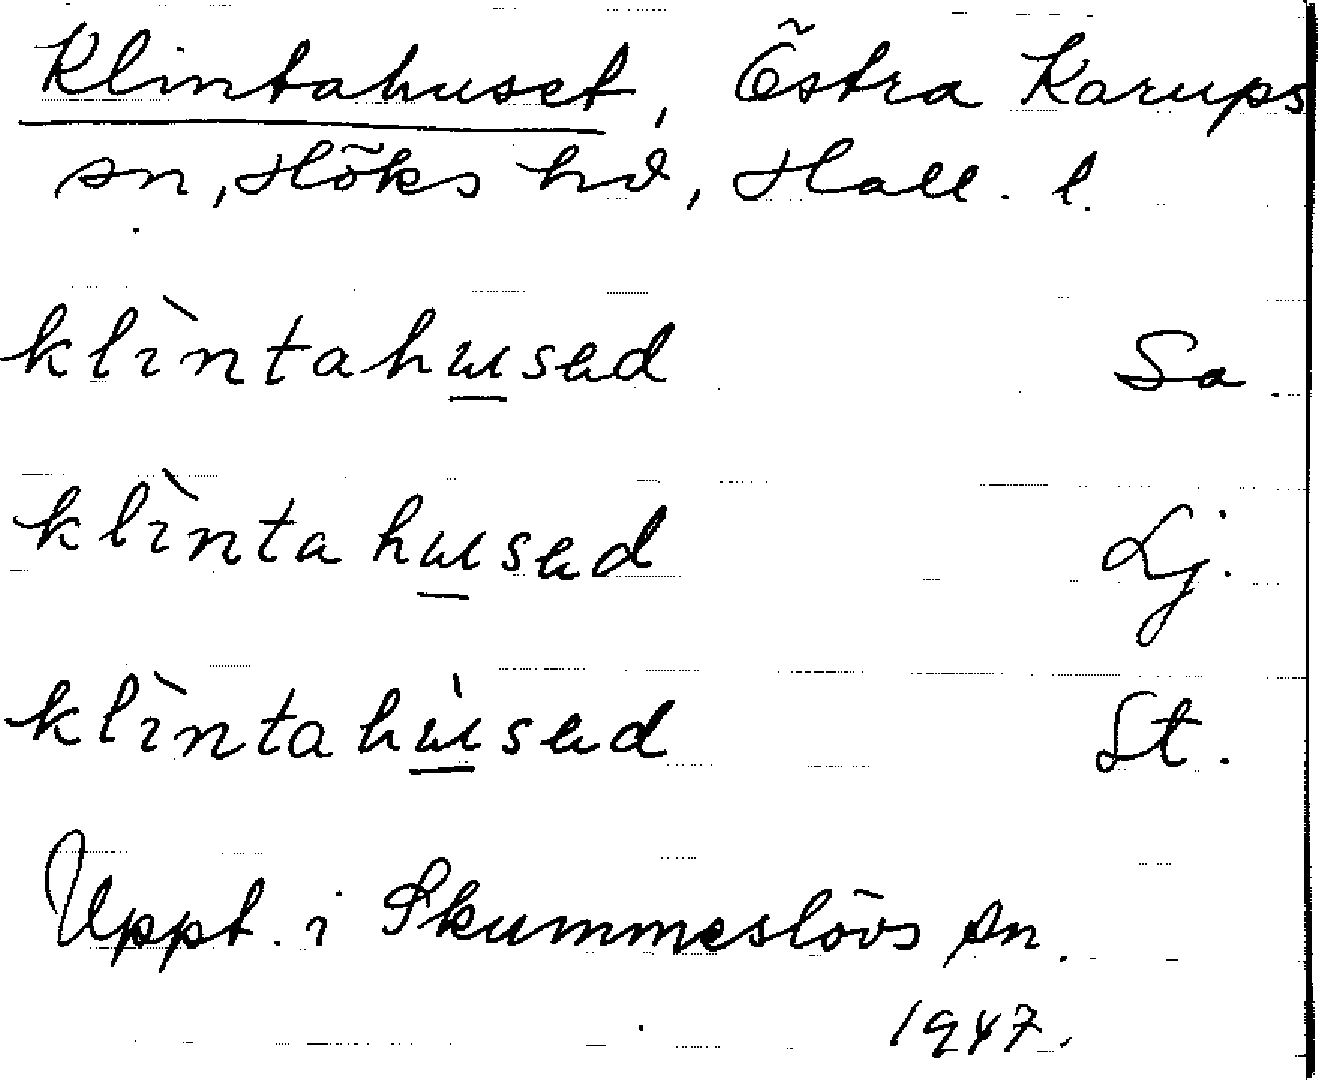 Klintahuset, Östra Karups
sn, Höks hd, Hall. l.
klìntahused Sa
klìntahused Lj.
klìntahúsed St.
Uppt. i Skummeslövs sn.
1947.